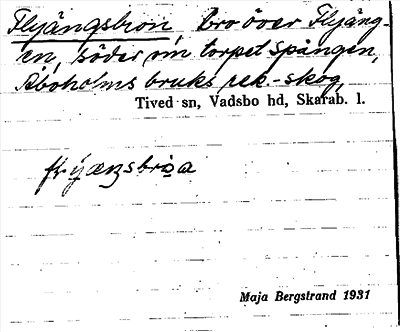 Flyängsbron, bro över Flyäng-
en, söder om torpet Spången,
Åboholms bruks rek.-skog,
Tived sn, Vadsbo hd, Skarab. l.
Maja Bergstrand 1931